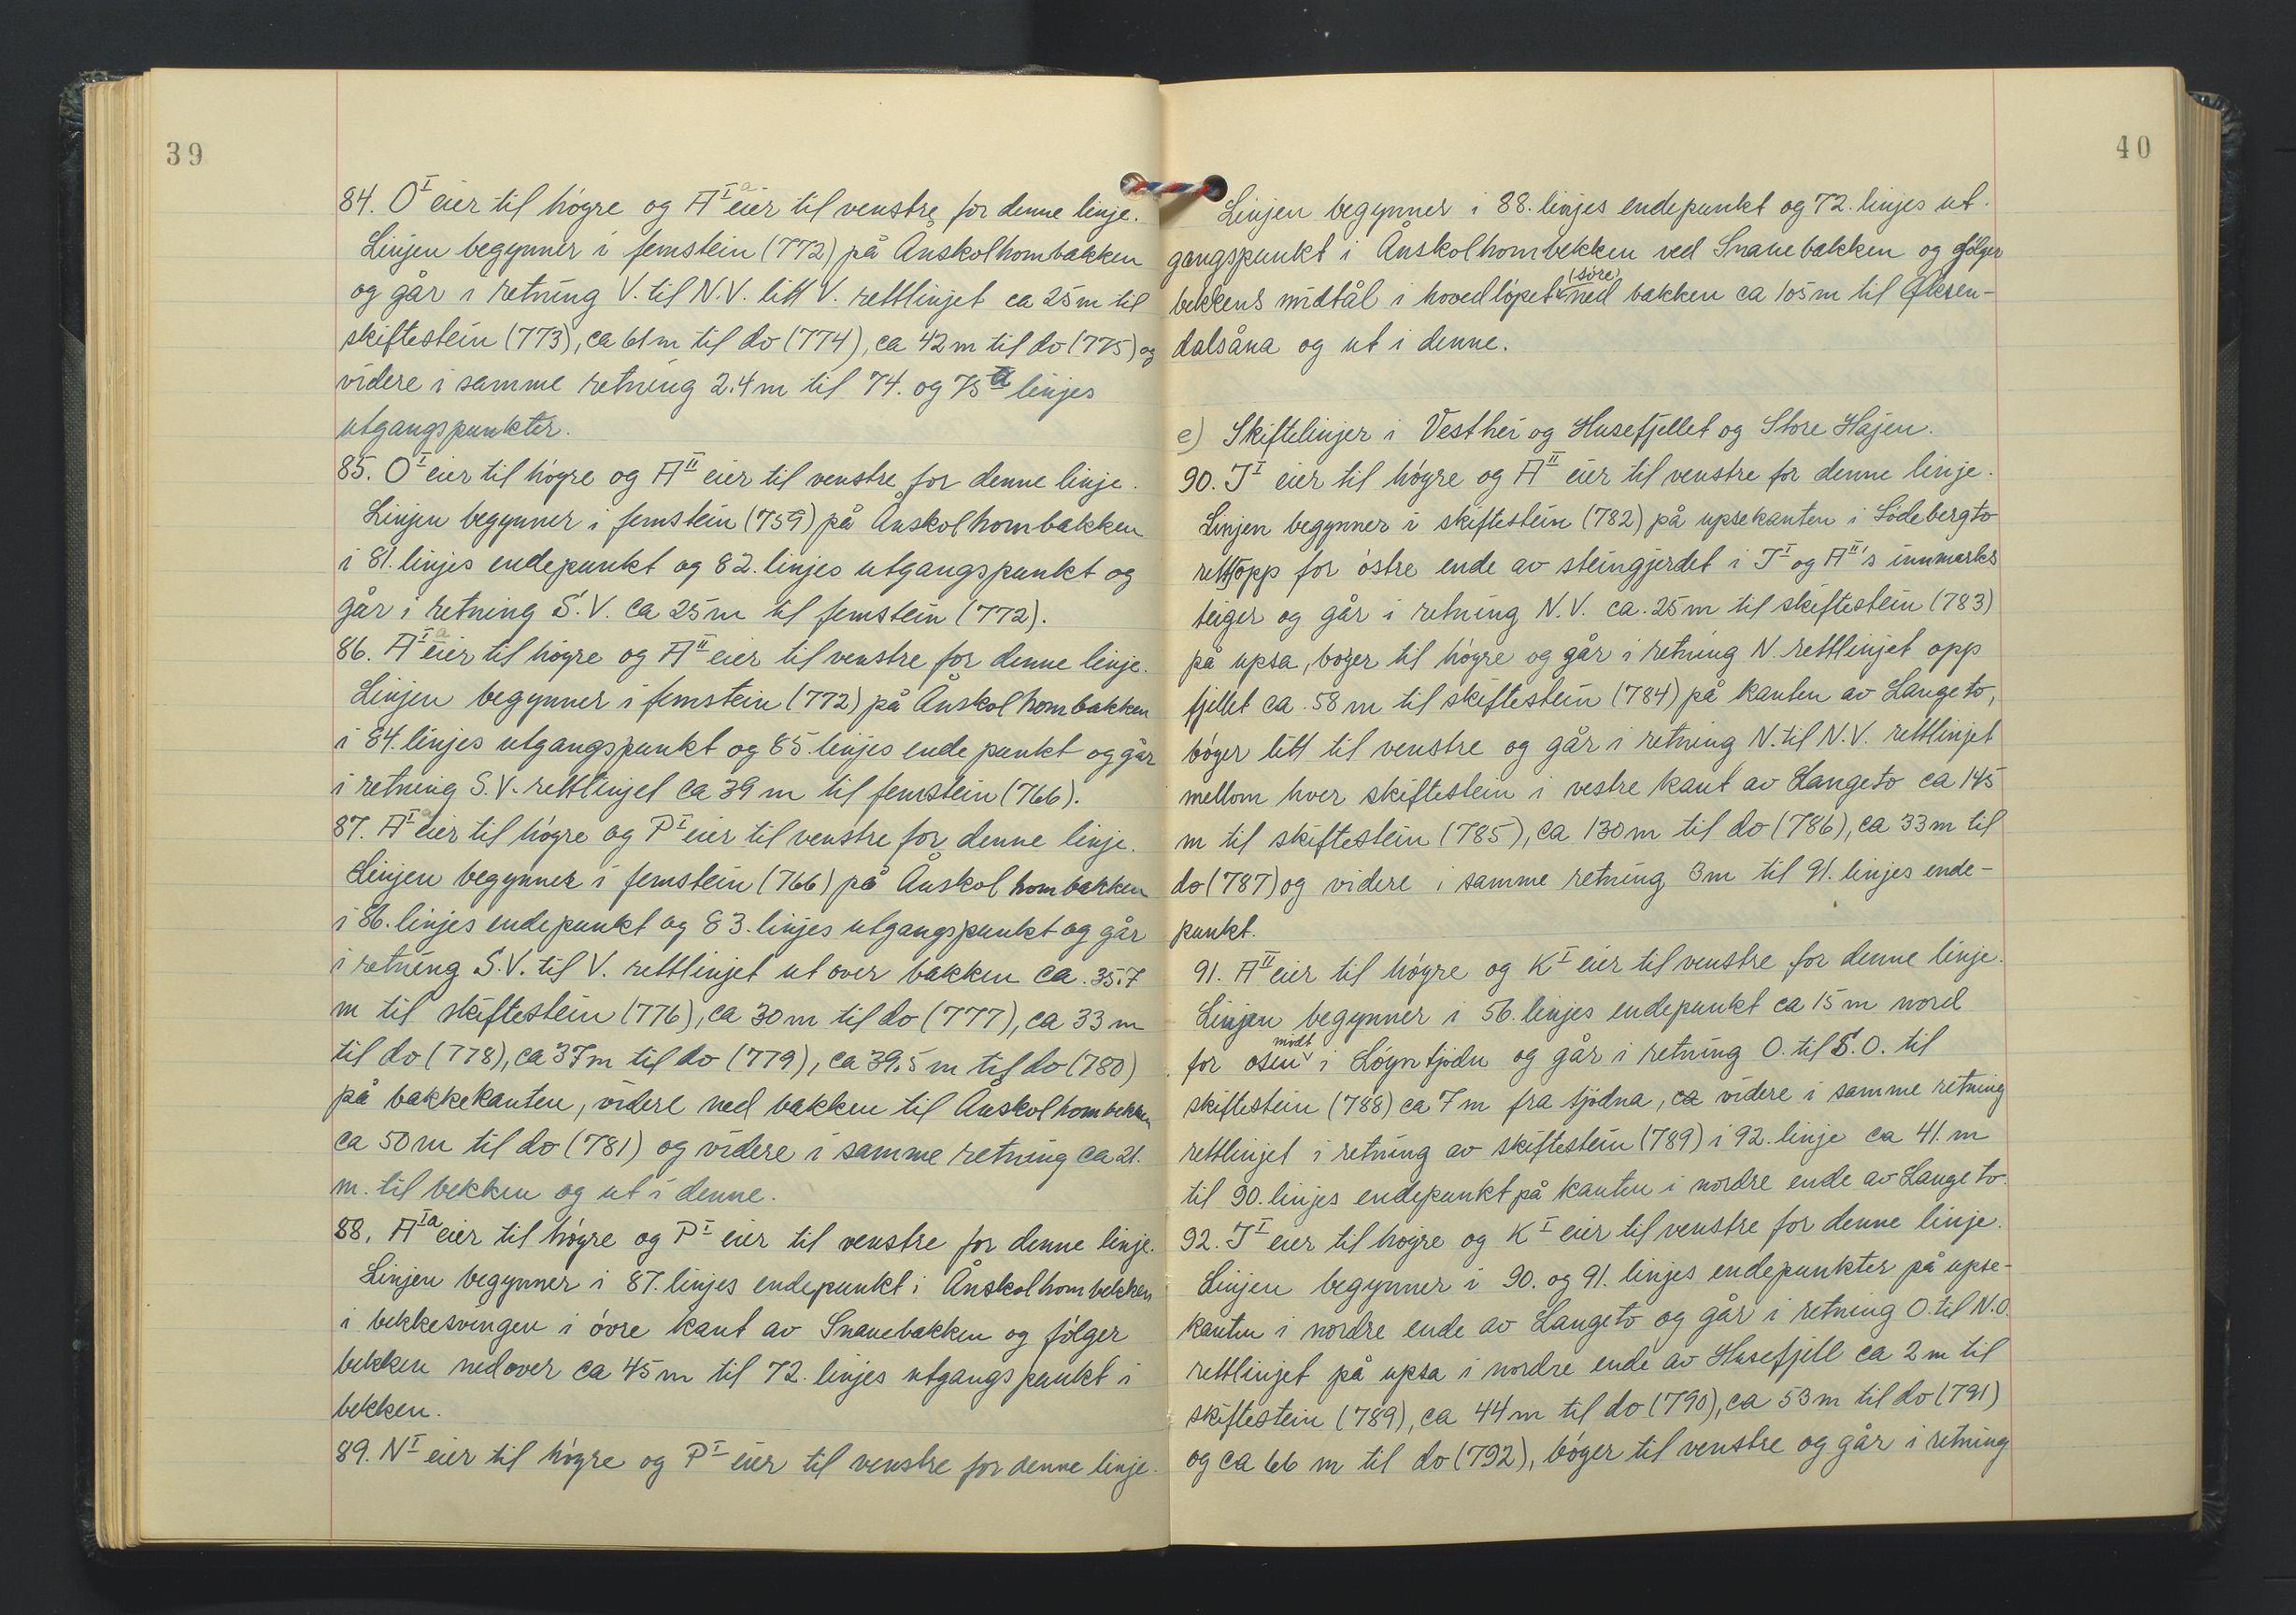 39
84. O^I eier til høgre og A^Ia eier til venstre for denne linje.
Linjen begynner i femstein (772) på Ånskolhombakken
og går i retning V. til N.V. litt V. rettlinjet ca 25 m til
skiftestein (773), ca 61 m til do (774), ca 42 m til do (775) og
videre i samme retning 2.4 m til 74. og 75a linjes
utgangspunkter.
85. O^I eier til høgre og A^II eier til venstre for denne linje.
Linjen begynner i femstein (759) på Ånskolhombakken
i 81. linjes endepunkt og 82. linjes utgangspunkt og
går i retning S.V. ca 25 m til femstein (772).
86. A^Ia eier til høgre og A^II eier til venstre for denne linje.
Linjen begynner i femstein (772) på Ånskolhombakken
i 84. linjes utgangspunkt og 85. linjes endepunkt og går
i retning S.V. rettlinjet ca 39 m til femstein (766).
87. A^Ia eier til høgre og P^I eier til venstre for denne linje.
Linjen begynner i femstein (766) på Ånskolhombakken
i 86. linjes endepunkt og 83. linjes utgangspunkt og går
i retning S.V. til V. rettlinjet ut over bakken ca. 35.7
m til skiftestein (776), ca 30 m til do (777), ca 33 m
til do (778), ca 37 m til do (779), ca 39.5 m til do (780)
på bakkekanten, videre ned bakken til Ånskolhombekken
ca 50 m til do (781) og videre i samme retning ca 21.
m. til bekken og ut i denne.
88. A^Ia eier til høgre og P^I eier til venstre for denne linje.
Linjen begynner i 87. linjes endepunkt i Ånskolhombekken
i bekkesvingen i øvre kant av Snauebakken og følger
bekken nedover ca 45 m til 72. linjes utgangspunkt i
bekken.
89. N^I eier til høgre og P^I eier til venstre for denne linje.
40
Linjen begynner i 88. linjes endepunkt og 72. linjes ut-
gangspunkt i Ånskolhombekken ved Snauebakken og følger
bekkens midtål i hovedløpet (søre) ned bakken ca 105 m til Øksen-
dalsåna og ut i denne.
e) Skiftelinjer i Vesthei og Husefjellet og Store Håjen.
90. J^I eier til høgre og A^II eier til venstre for denne linje.
Linjen begynner i skiftestein (782) på upsekanten i Lødebergto
rett opp for østre ende av steingjerdet i J^I og A^II's innmarks
teiger og går i retning N.V. ca. 25 m til skiftestein (783)
på upsa, bøger til høgre og går i retning N. rettlinjet opp
fjellet ca. 58 m til skiftestein (784) på kanten av Langeto,
bøger litt til venstre og går i retning N. til N.V. rettlinjet
mellom hver skiftestein i vestre kant av Langeto ca 145
m til skiftestein (785), ca 130 m til do (786), ca 33 m til
do (787) og videre i samme retning 3 m til 91. linjes ende-
punkt.
91. A^II eier til høgre og K^I eier til venstre for denne linje.
Linjen begynner i 56. linjes endepunkt ca 15 m nord
for osen midt i Løyntjødn og går i retning O. til S.O. til
skiftestein (788) ca 7 m fra tjødna, ca videre i samme retning
rettlinjet i retning av skiftestein (789) i 92. linje ca 41. m
til 90. linjes endepunkt på kanten i nordre ende av Langeto.
92. J^I eier til høgre og K^I eier til venstre for denne linje.
Linjen begynner i 90. og 91. linjes endepunkter på upse-
kanten i nordre ende av Langeto og går i retning O. til N.O.
rettlinjet på upsa i nordre ende av Husefjell ca 2 m til
skiftestein (789), ca 44 m til do (790), ca 53 m til do (791)
og ca 66 m til do (792), bøger til venstre og går i retning